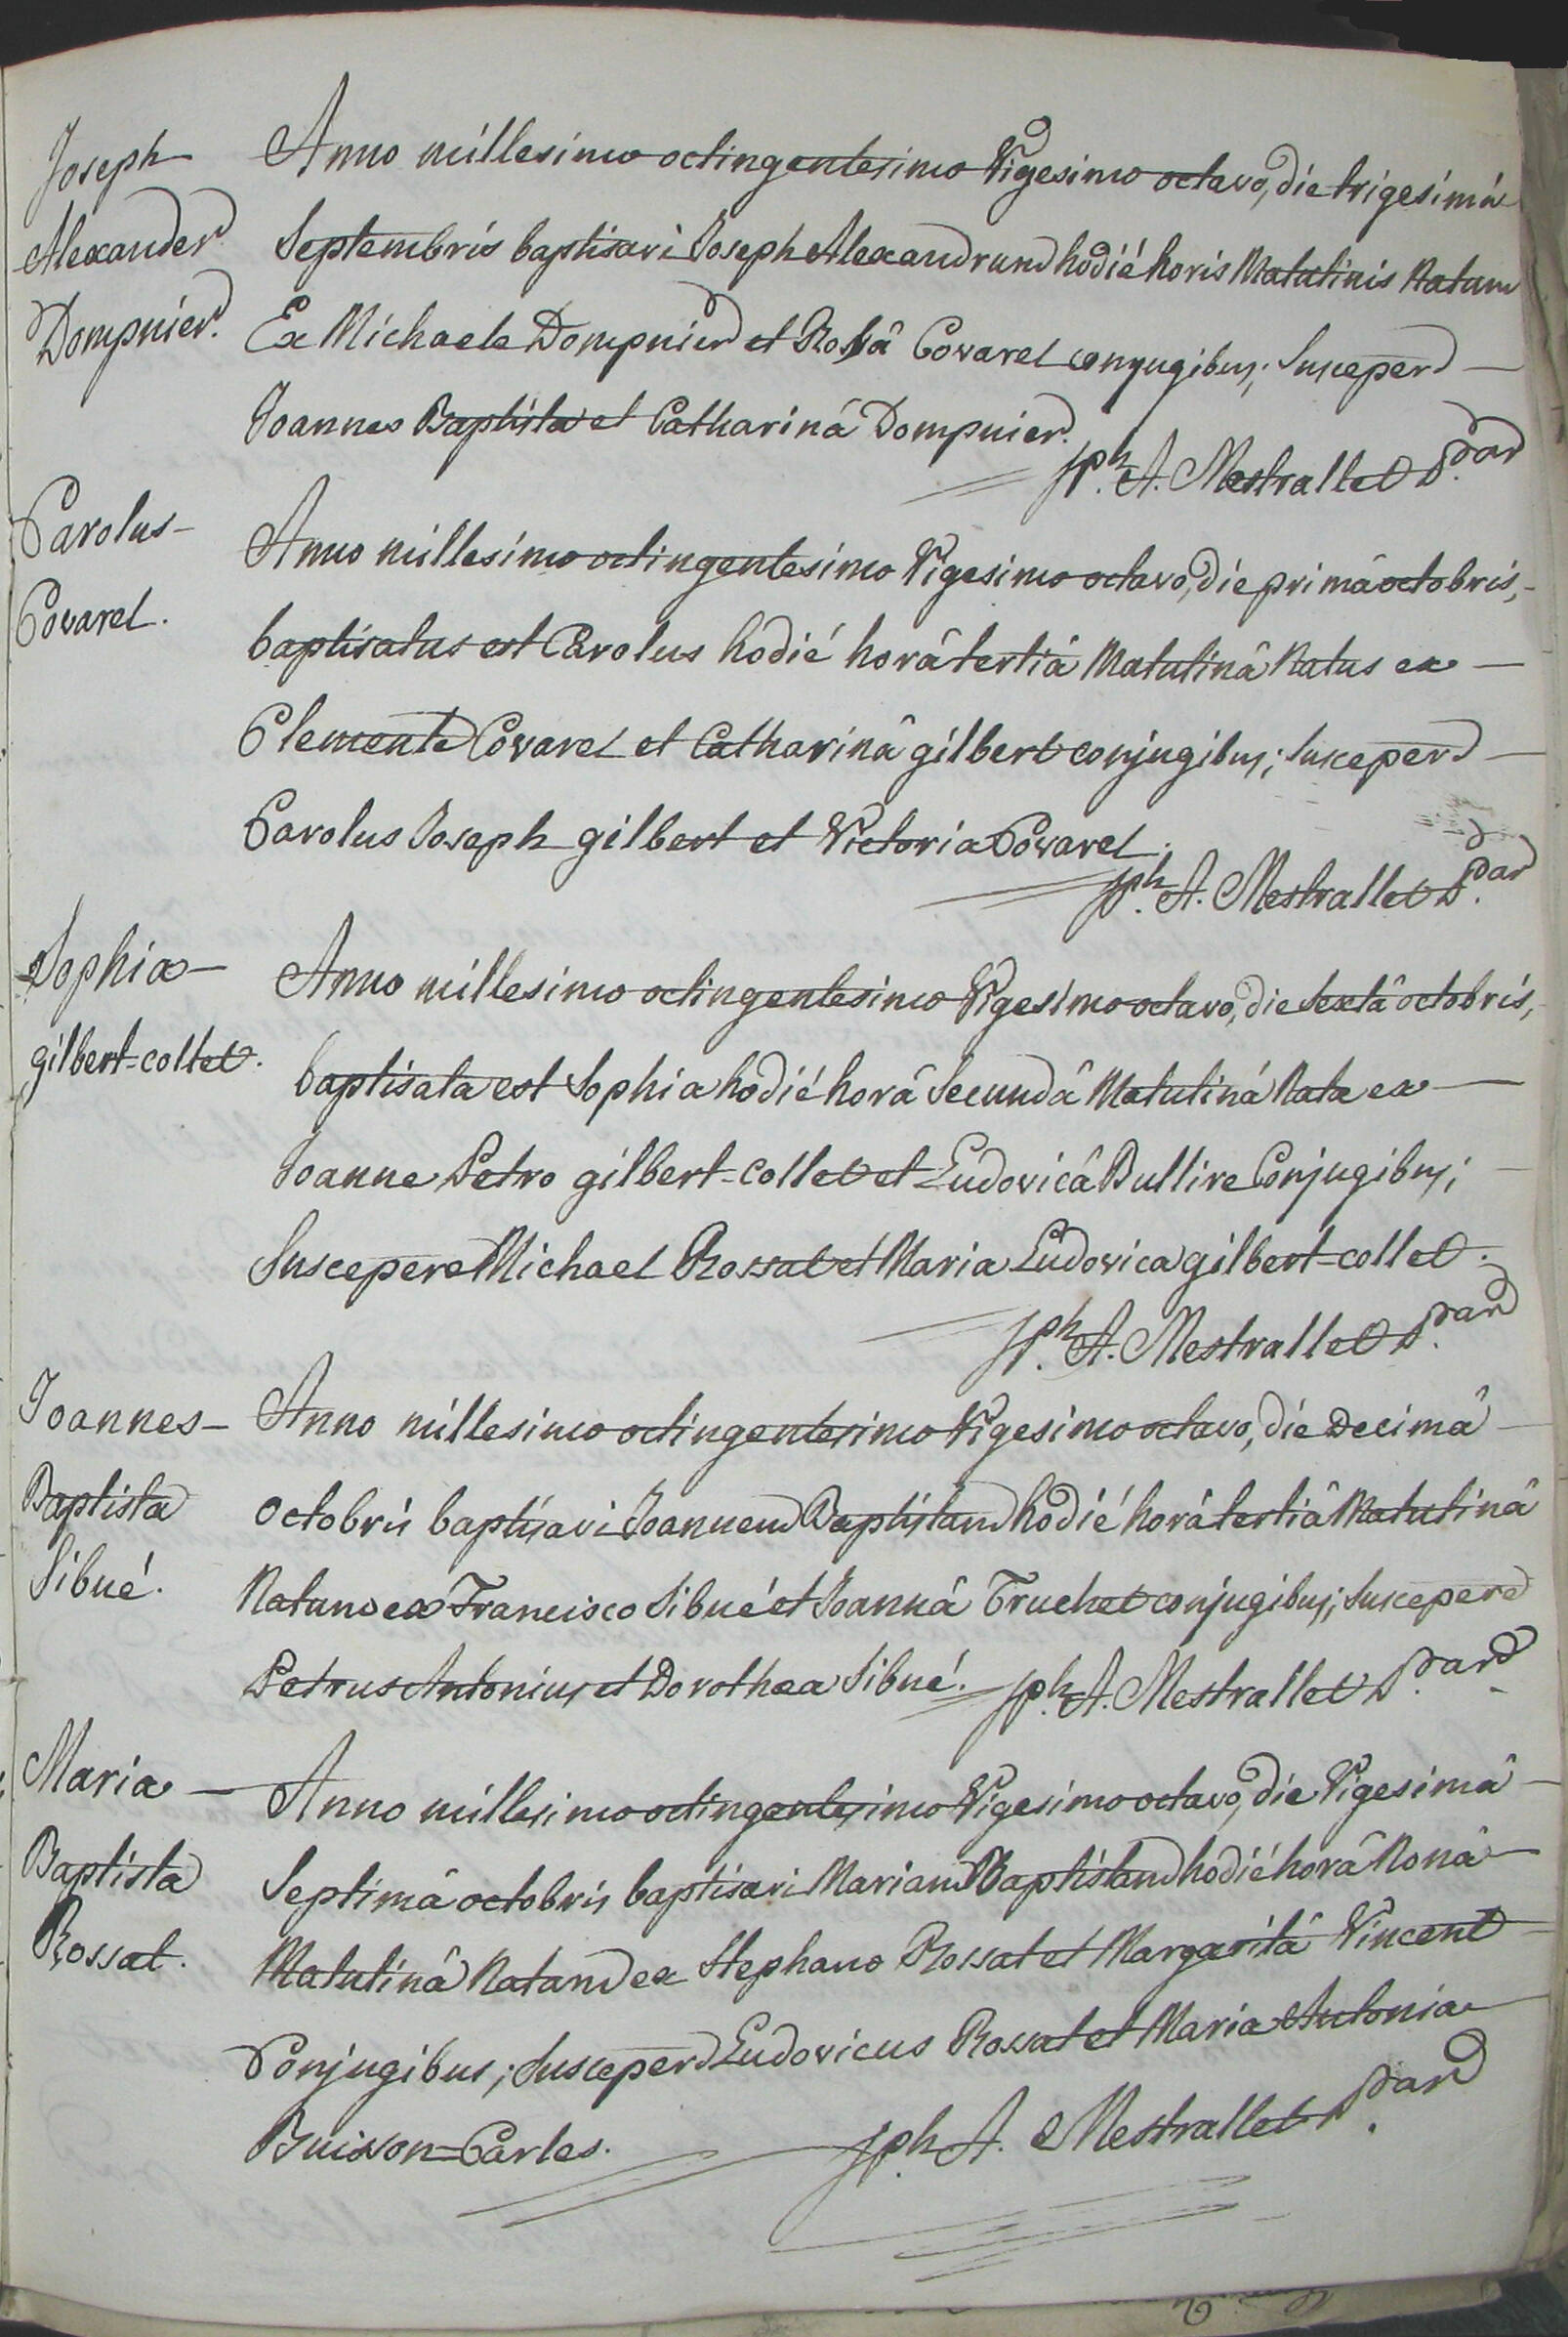 Joseph
Alexander
Dompnier.
Anno millesimo octingentesimo Vigesimo octavo, die trigesimâ
Septembris baptisavi Joseph Alexandrum hodié horis Matutinis Natum
Ex Michaele Dompnier et Rosâ Covarel conjugibus; Suscepere
Joannes Baptista et Catharina Dompnier.
Jph. A. Mestrallet
Carolus
Covarel.
Anno millesimo octingentesimo Vigesimo octavo, die primâ octobris,
baptisatus est Carolus hodié horâ tertiâ Matutinâ Natus ex
Clemente Covarel et Catharinâ gilbert conjugibus; Suscepere
Carolus Joseph gilbert et Victoria Covarel.
Jph. A. Mestrallet
Sophia
gilbert-collet.
Anno millesimo octingentesimo Vigesimo octavo, die Sextâ octobris,
baptisata est Sophia hodié horâ Secundâ Matutinâ Nata ex
Joanne Petro gilbert-collet et Ludovicâ Bullire Conjugibus;
Suscepere Michael Rossat et Maria Ludovica gilbert-collet.
Jph. A. Mestrallet
Joannes
Baptista
Sibué.
Anno millesimo octingentesimo Vigesimo octavo, die Decimâ
octobris baptisavi Joannem Baptistam hodié horâ tertiâ Matutinâ
Natum ex Francisco Sibué et Joannâ Truchet conjugibus; Suscepere
Petrus Antonius et Dorothea Sibué. Jph. A. Mestrallet
Maria
Baptista
Rossat.
Anno millesimo octingentesimo Vigesimo octavo, die Vigesimâ
Septimâ octobris baptisavi Mariam Baptistam hodié horâ Nonâ
Matutinâ Natam ex Stephano Rossat et Margaritâ Vincent
Conjugibus; Suscepere Ludovicus Rossat et Maria Antonia
Buisson=Carles. Jph. A. Mestrallet